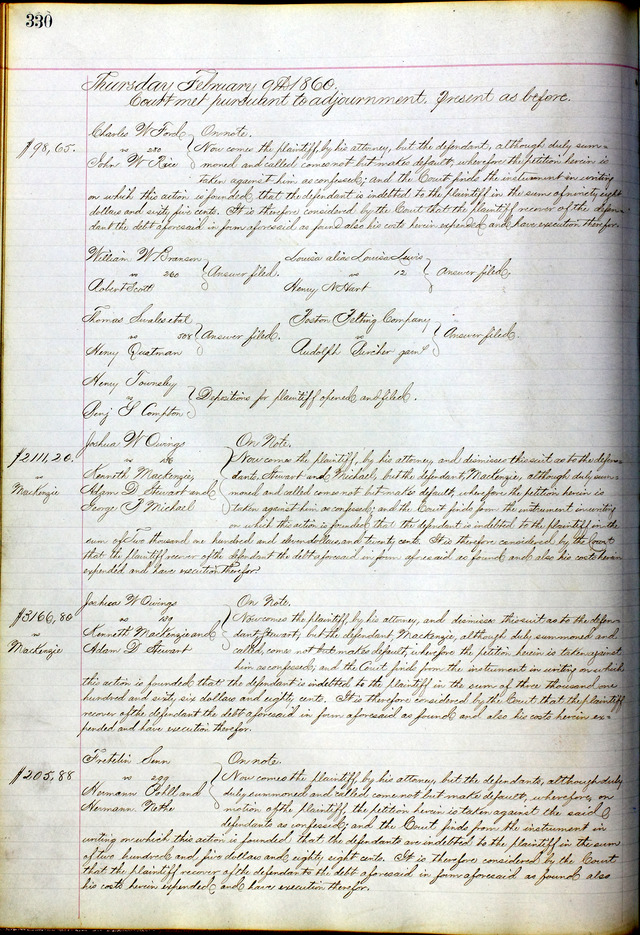 330
Thursday February 9th 1860.
Court met pursuant to adjournment. Present as before.
Charles W Ford On note.
$98,65. vs 230 Now comes the plaintiff, by his attorney, but the defendant, although duly sum-
John W Rice moned and called comes not but makes default, wherefore the petition herein is
taken against him as confessed; and the Court finds the instrument in writing
on which this action is founded, that the defendant is indebted to the plaintiff in the sum of ninety eight
dollars and sixty five cents. It is therefore considered by the Court that the plaintiff recover of the defen-
dant the debt aforesaid in form aforesaid as found also his costs herein expended and have execution therefor.
William W Branson Louisa alias Louisa Lewis
vs 260 Answer filed. vs 12 Answer filed,
Robert Scott Henry N Hart
Thomas Swales et al Boston Belting Company
vs Answer filed. vs Answer filed.
Henry Quatman Rudolph Bircher
Henry Townsley
vs Depositions for plaintiff opened and filed.
Benj S Compton
Joshua W Owings On Note.
$2111,20. vs Now comes the plaintiff, by his attorney, and dismisses this suit as to the defen-
vs Kenneth Mackenzie, dants, Stewart and Michael, but the defendant, Mackenzie, although duly sum-
MacKenzie Adam D Stewart and moned and called comes not but makes default, wherefore the petition herein is
George P Michael taken against him as confessed; and the Court finds from the instrument in writing
on which the action is founded, that the defendant is indebted to the plaintiff in the
sum of Two thousand one hundred and eleven dollars, and twenty cents. It is therefore considered by the Court
that the plaintiff recover of the defendant the debt aforesaid in form aforesaid as found and also his costs herein
expended and have execution therefor.
Joshua W Owings On Note.
$3166,80 vs 139 Now comes the plaintiff, by his attorney, and dismisses this suit as to the defen-
vs Kenneth Mackenzie and dant, Stewart, but the defendant, Mackenzie, although duly summoned and
MacKenzie Adam D Stewart called, comes not but makes default, wherefore the petition herein is taken against
him as confessed, and the Court finds from the instrument in writing on which
this action is founded that the defendant is indebted to the plaintiff in the sum of three thousand one
hundred and sixty six dollars and eighty cents. It is therefore considered by the Court that the plaintiff
recover of the defendant the debt aforesaid in form aforesaid as found and also his costs herein ex-
pended and have execution therefor.
Fridelin Senn On note.
$205,88 vs 299 Now comes the plaintiff, by his attorney, but the defendants, although duly
Hermann Pohl and duly summoned and called come not but make default, wherefore, on
Hermann Nethe motion of the plaintiff, the petition herein is taken against the said
defendants as confessed; and the Court finds from the instrument in
writing on which this action is founded that the defendants are indebted to the plaintiff in the sum
of two hundred and five dollars and eighty eight cents. It is therefore considered by the Court
that the plaintiff recover of the defendants the debt aforesaid in form aforesaid as found also
his costs herein expended and have execution therefor.